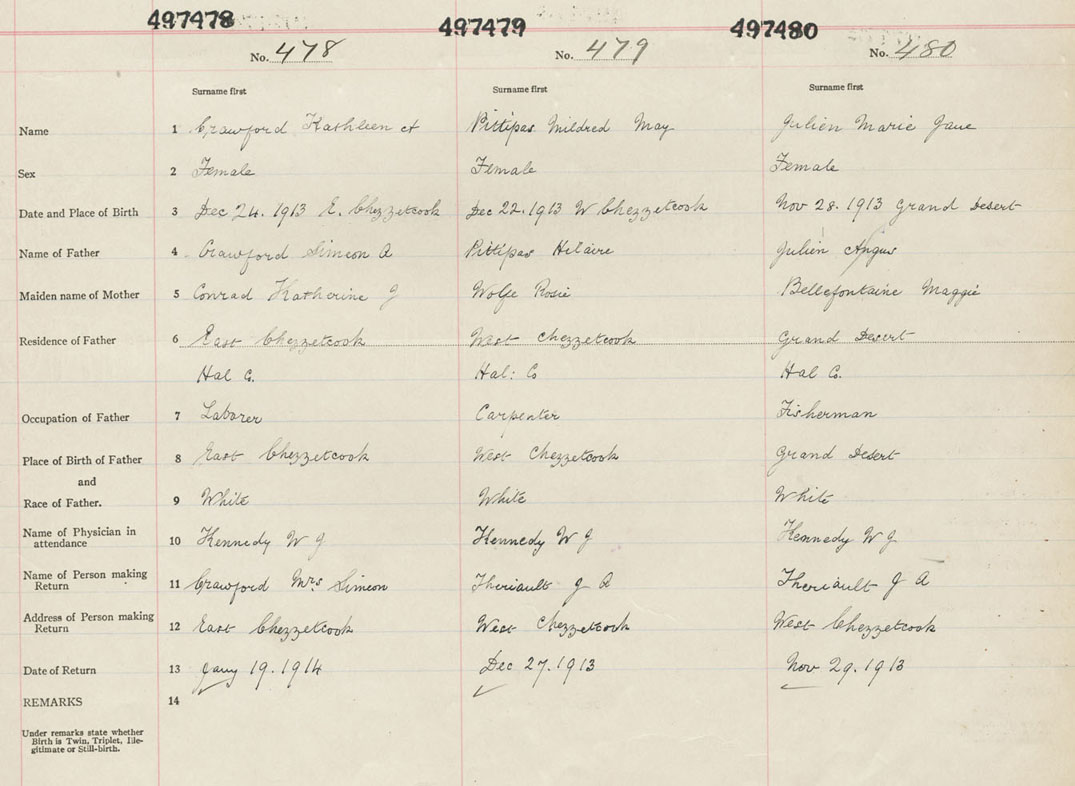 497478 497479 497480
No. 478 No. 479 No. 480
Surname first Surname first Surname first
Name 1 Crawford Kathleen A Pittipas Mildred May Julien Marie Jane
Sex 2 Female Female Female
Date and Place of Birth 3 Dec 24. 1913 E. Chezzetcook Dec 22. 1913 W Chezzetcook Nov 28. 1913 Grand Desert
Name of Father 4 Crawford Simeon A Pittipas Hilaire Julien Angus
Maiden name of Mother 5 Conrad Katherine J Wolfe Rosie Bellefontaine Maggie
Residence of Father 6 East Chezzetcook West Chezzetcook Grand Desert
Hal Co. Hal: Co Hal Co.
Occupation of Father 7 Laborer Carpenter Fisherman
Place of Birth of Father 8 East Chezzetcook West Chezzetcook Grand Desert
and
Race of Father. 9 White White White
Name of Physician in
attendance 10 Kennedy W J Kennedy W J Kennedy W J
Name of Person making
Return 11 Crawford Mrs Simeon Theriault J A Theriault J A
Address of Person making
Return 12 East Chezzetcook West Chezzetcook West Chezzetcook
Date of Return 13 Jany 19. 1914 Dec 27. 1913 Nov 29. 1913
REMARKS 14
Under remarks state whether
Birth is Twin, Triplet, Ille-
gitimate or Still-birth.